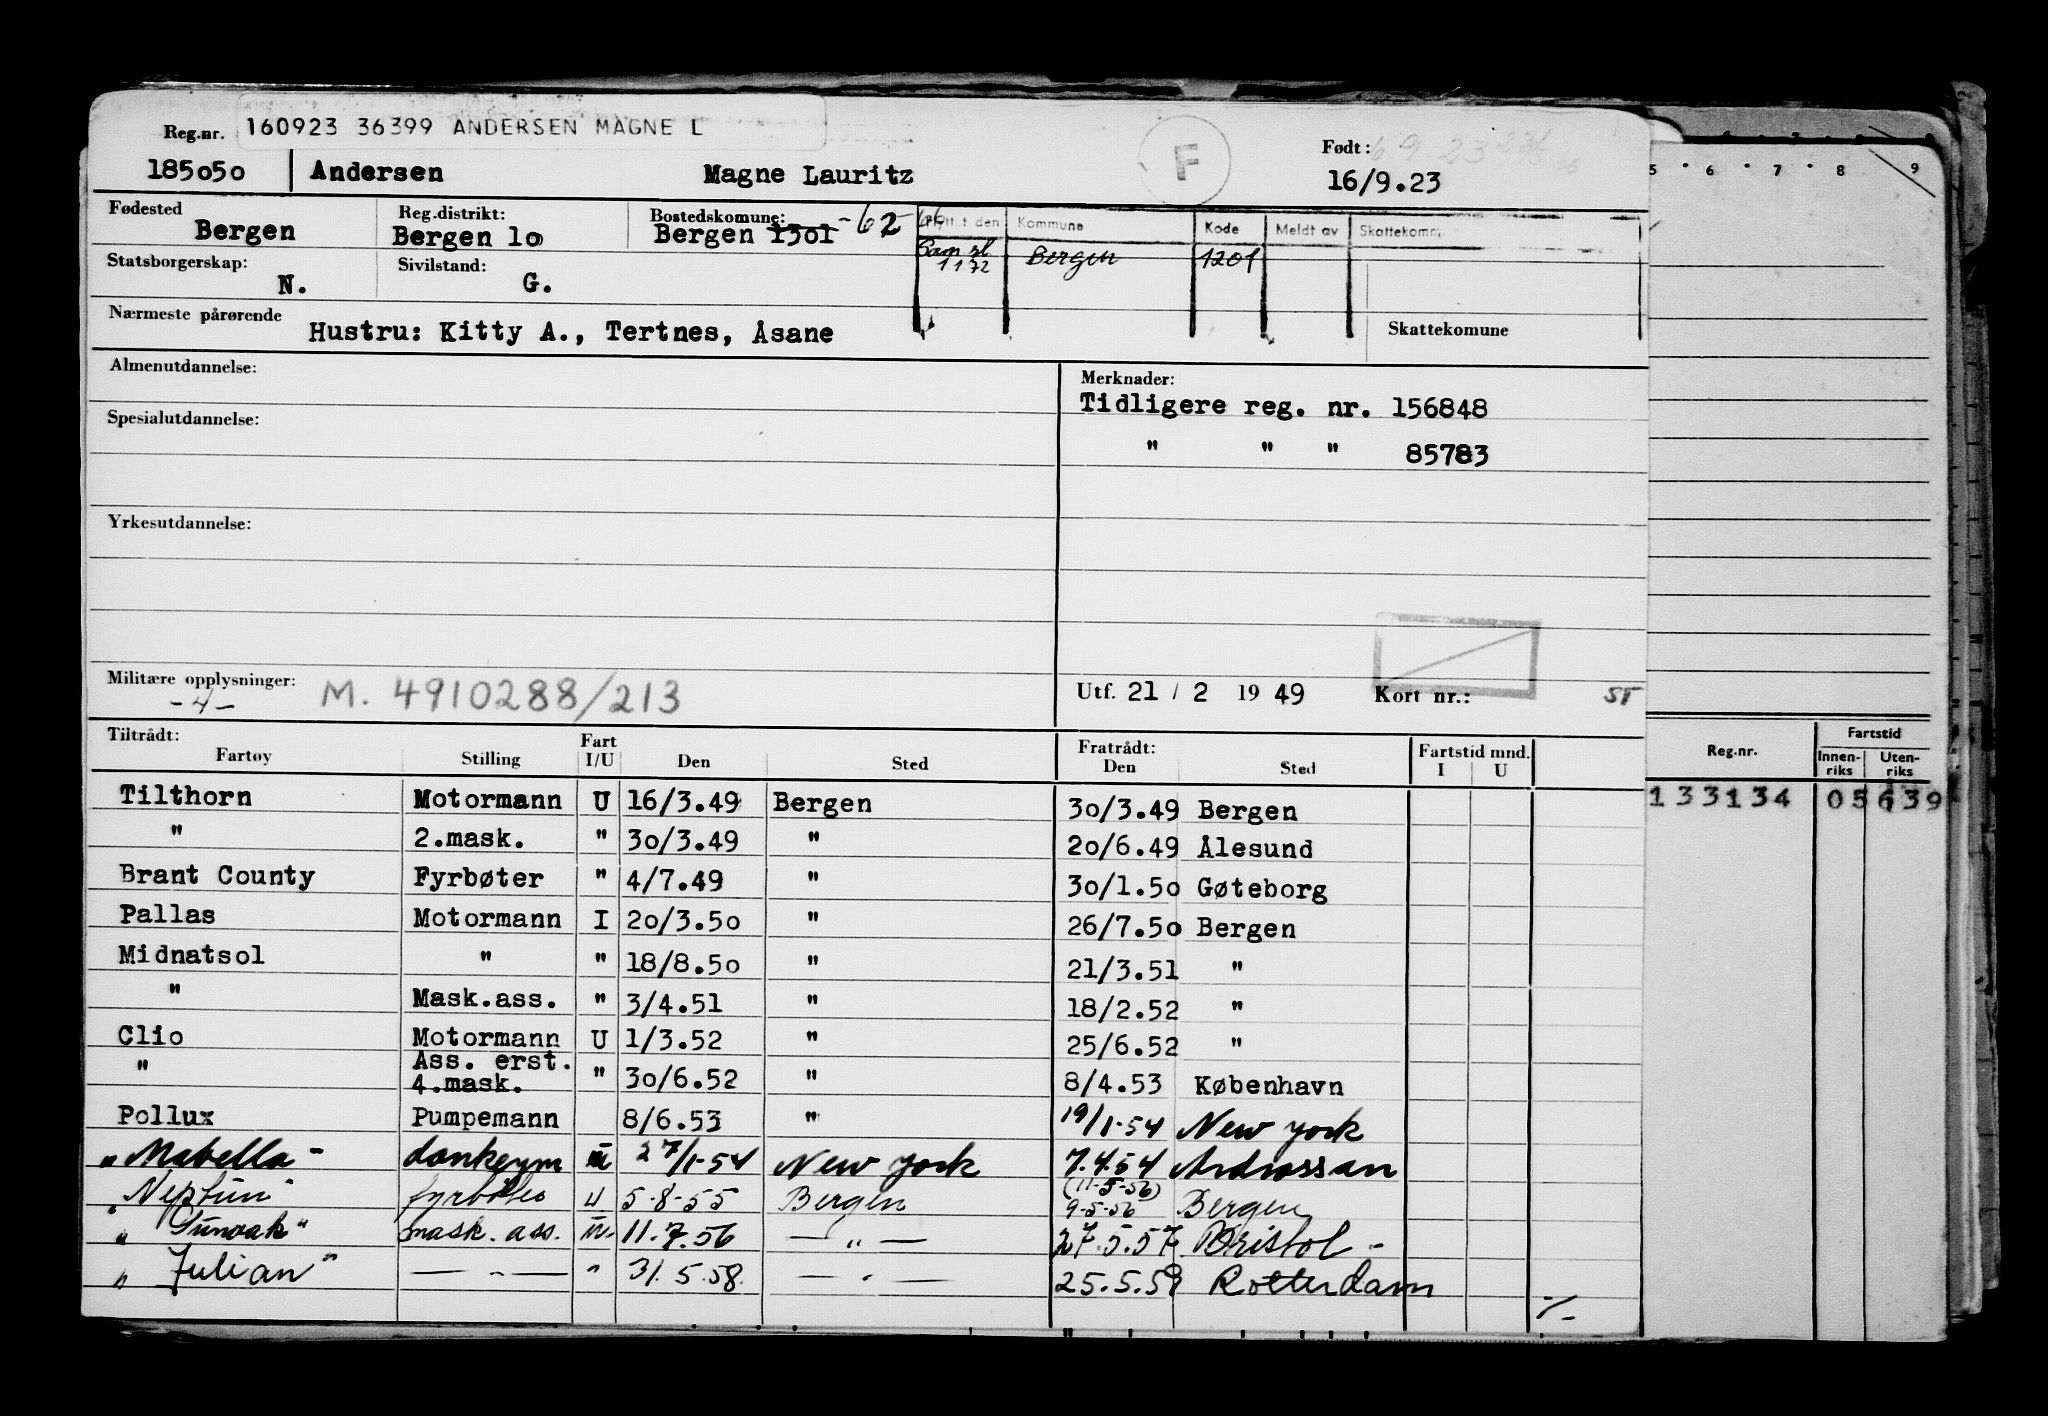 Reg.nr. 160923 36399 ANDERSEN MAGNE L
185050 Andersen Magne Lauritz F Født: 16/9.23
Fødested Bergen Reg.distrikt: Bergen 10 Bostedskomune: Bergen 1301 -62
Flytt.t den Kommune Kode Meldt av Skattekomm.
1 1 72 Bergen 1201
Statsborgerskap: N. Sivilstand: G.
Nærmeste pårørende Hustru: Kitty A., Tertnes, Åsane Skattekomune
Almenutdannelse:
Merknader:
Tidligere reg. nr. 156848
" " " 85783
Spesialutdannelse:
Yrkesutdannelse:
Militære opplysninger: -4- M. 4910288/213
Utf. 21 / 2 19 49 Kort nr.:
Tiltrådt: Fratrådt:
Fartøy Stilling Fart I/U Den Sted Den Sted Fartstid mnd. I U
Tilthorn Motormann U 16/3.49 Bergen 30/3.49 Bergen
" 2.mask. " 30/3.49 " 20/6.49 Ålesund
Brant County Fyrbøter " 4/7.49 " 30/1.50 Gøteborg
Pallas Motormann I 20/3.50 " 26/7.50 Bergen
Midnatsol " " 18/8.50 " 21/3.51 "
" Mask.ass. " 3/4.51 " 18/2.52 "
Clio Motormann U 1/3.52 " 25/6.52 "
" Ass. erst. 4.mask. " 30/6.52 " 8/4.53 København
Pollux Pumpemann 8/6.53 " 19/1-54 New york
"Mabella" donkeym 27/1-54 New york 7.4.54 Ardrossan
"Neptun" fyrbøter u 5-8-55 Bergen (11-5-56) 9-5-56 Bergen
mask. ass. 11.7.56 — " — 27.5.57 Bristol -
" Julian" — " — " 31.5.58. — " — 25.5.59 Rotterdam
Reg.nr. Fartstid Innen-riks Uten-riks
133134 05 639
5 6 7 8 9